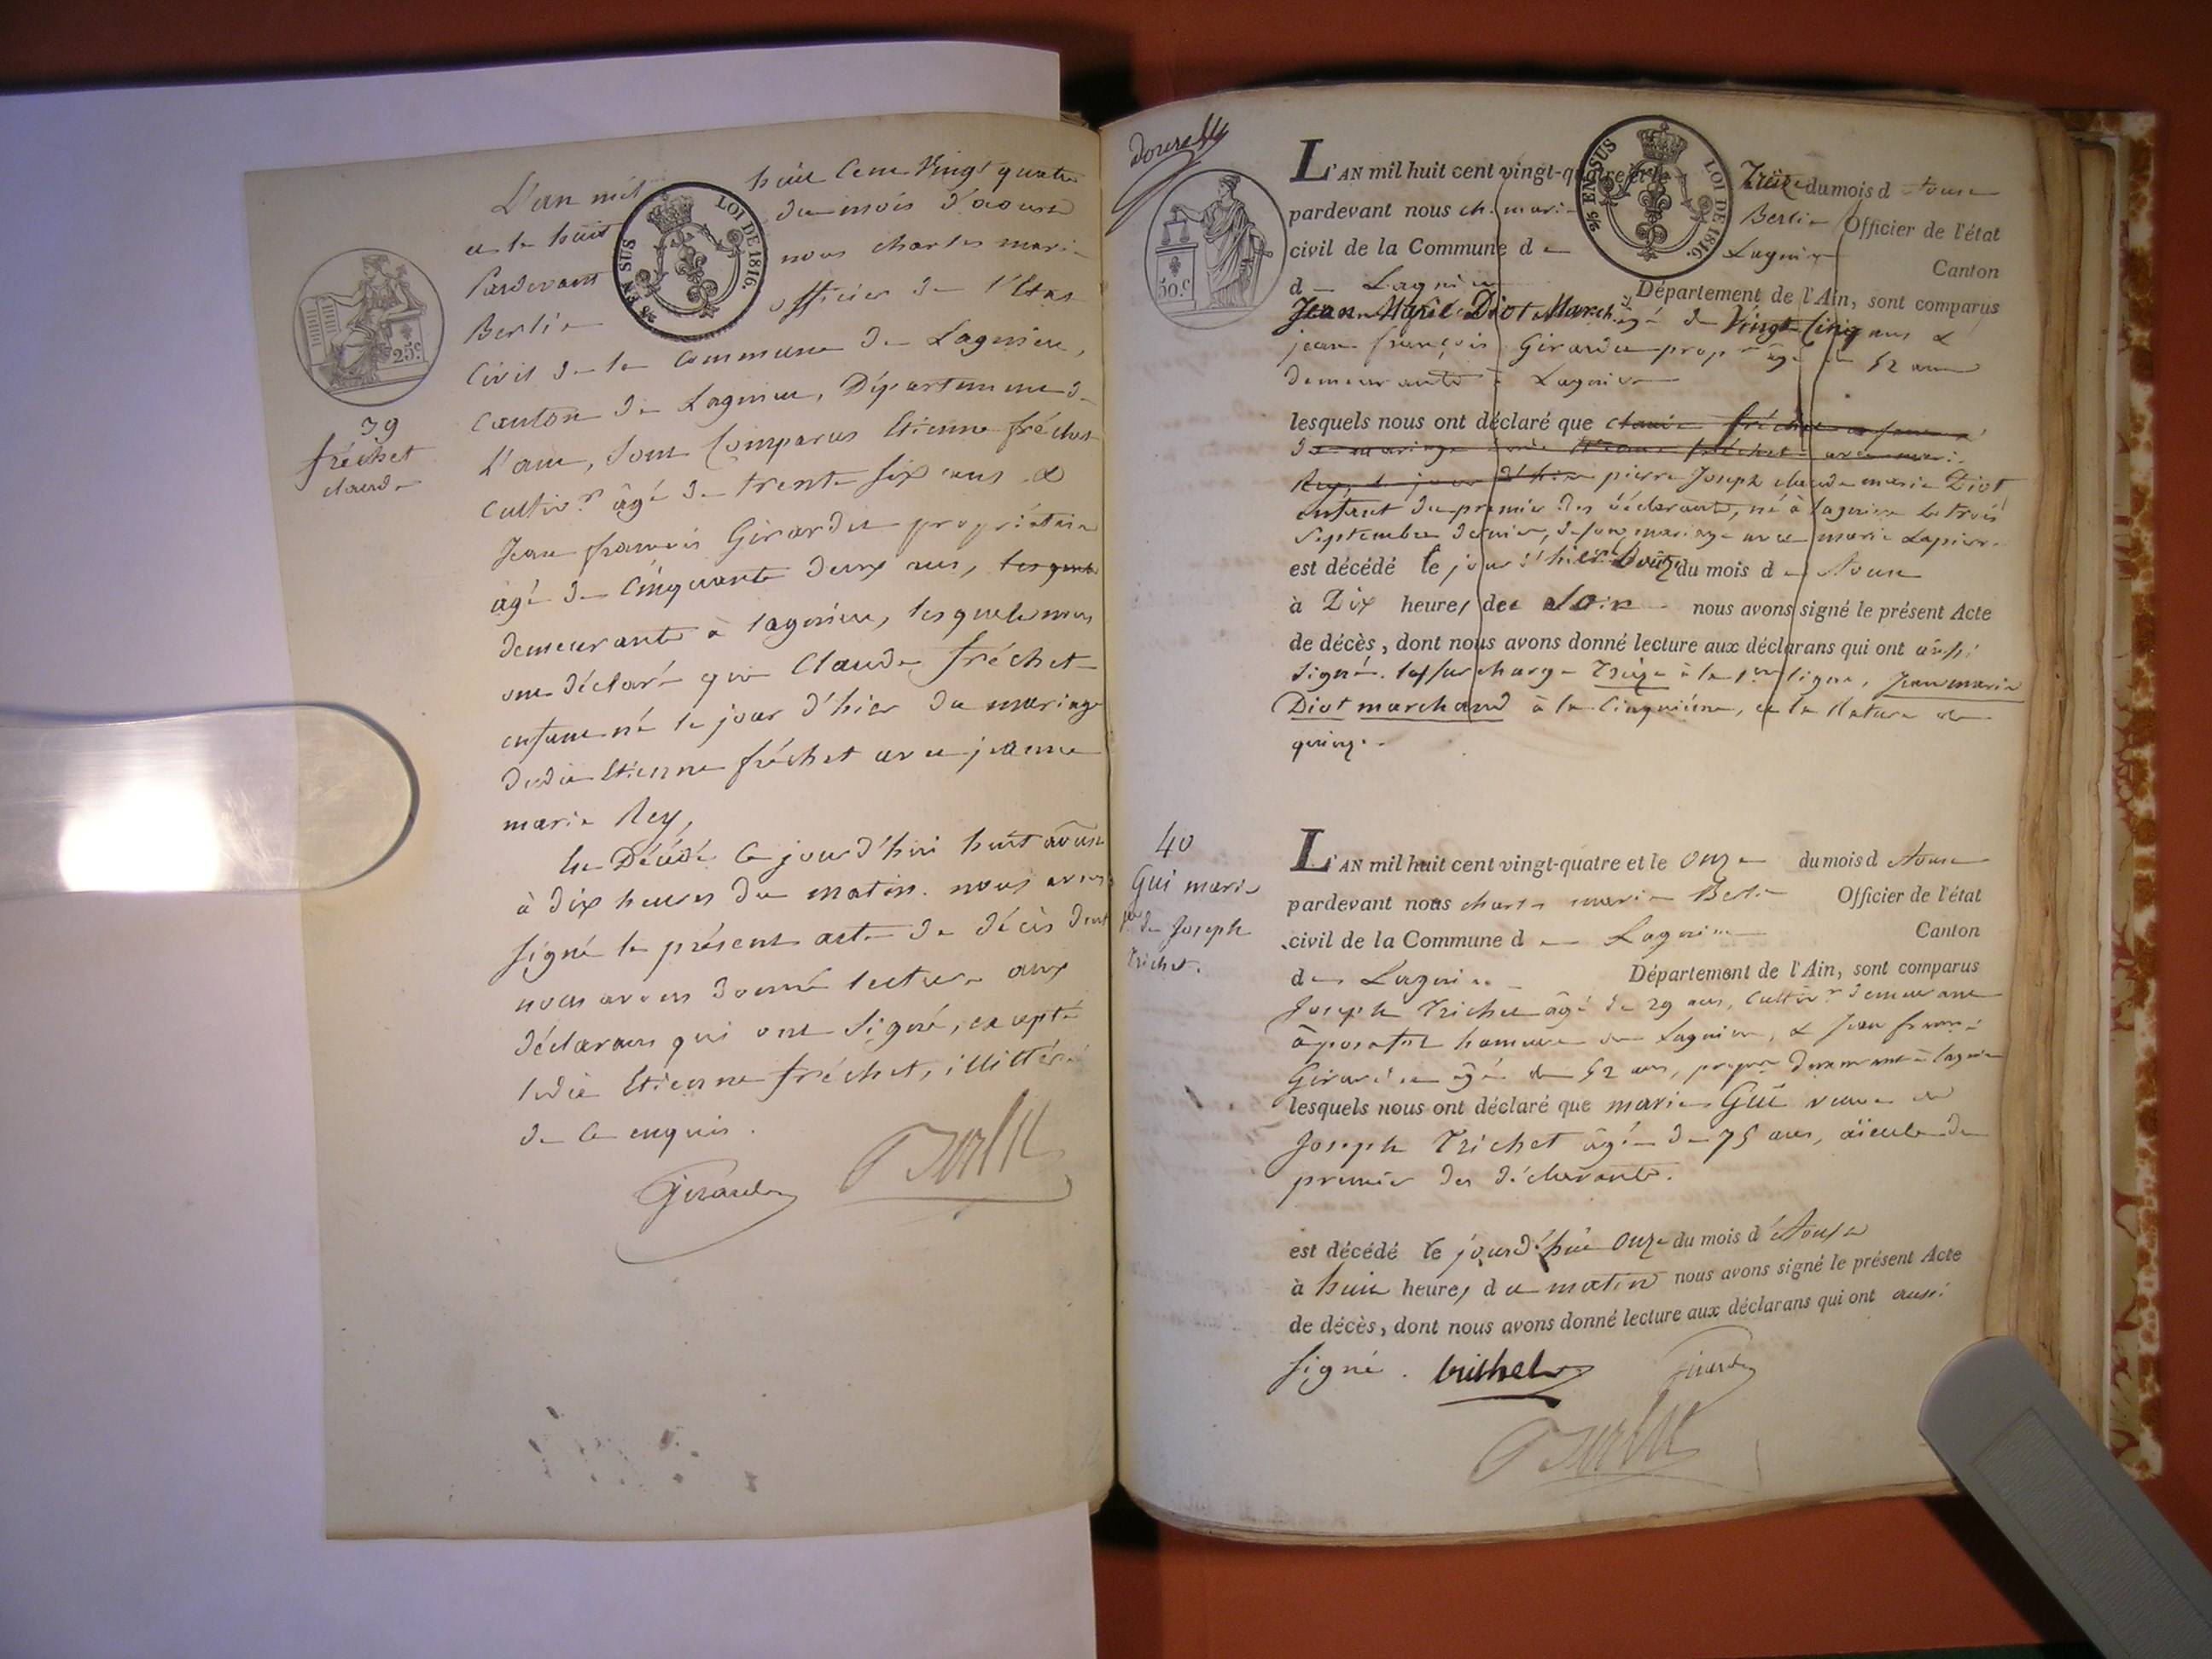 L'an mil huit Cent Vingt quatre
et le huit du mois d'aoust
Pardevant nous charles marie
Berlie officier de l'Etat
Civil de la Commune de Lagnieu,
Canton de Lagnieu, Département de
L'ain, sont Comparus Etienne fréchet
cultivr âgé de trente six ans &
Jean françois Girardin propriétaire
âgé de Cinquante deux ans, lesquels
demeurants à lagnieu, lesquels nous
ont déclaré que Claude fréchet
enfant né le jour d'hier du mariage
dudit Etienne fréchet avec jeanne
marie Rey,
Est Décédé ce jourd'hui huit aoust
à dix heures du matin. nous avons
signé le présent acte de décès dont
nous avons donné lecture aux
déclarans qui ont signé, excepté
ledit Etienne fréchet, illittéré
de ce enquis.
Girardin
Berlie
25c.
39
fréchet
claude
3/5 EN SUS LOI DE 1816.
50.c
L'AN mil huit cent vingt-quatre et le Treize du mois d'Aoust
pardevant nous ch. marie Berlie Officier de l'état
civil de la Commune de Lagnieu Canton
de Lagnieu Département de l'Ain, sont comparus
Jean Marie Diot March.d âgé de Vingt Cinq ans &
jean françois Girardin propre âgé de 52 ans
demeurants à Lagnieu
lesquels nous ont déclaré que claude fréchet
du mariage Etienne fréchet avec marie
Rey, le jour d'hier pierre Joseph claude marie Diot
enfant du premier des déclarants, né à lagnieu le trois
Septembre dernier, de son mariage avec marie Lapierre
est décédé le jour d'hier Douze du mois d'Aoust
à Dix heures du Soir nous avons signé le présent Acte
de décès, dont nous avons donné lecture aux déclarans qui ont aussi
signé. surcharge Treize à la 1ere ligne, Jean marie
Diot marchand à la Cinquième, et la
3/5 EN SUS LOI DE 1816.
40
Gui marie
ve de Joseph
Trichet.
L'AN mil huit cent vingt-quatre et le Onze du mois d'Aoust
pardevant nous charles marie Berlie Officier de l'état
civil de la Commune de Lagnieu Canton
de Lagnieu Département de l'Ain, sont comparus
Joseph Trichet âgé de 29 ans, Cultivr demeurant
à posafol hameau de Lagnieu, & Jean françois
Girardin âgé de 52 ans, propre demeurant à lagnieu
lesquels nous ont déclaré que marie Gui veuve de
Joseph Trichet âgée de 75 ans, aïeule du
premier des déclarants.
est décédé le jourd'hui Onze du mois d'Aoust
à huit heures du matin nous avons signé le présent Acte
de décès, dont nous avons donné lecture aux déclarans qui ont aussi
signé. trichet Girardin
Berlie